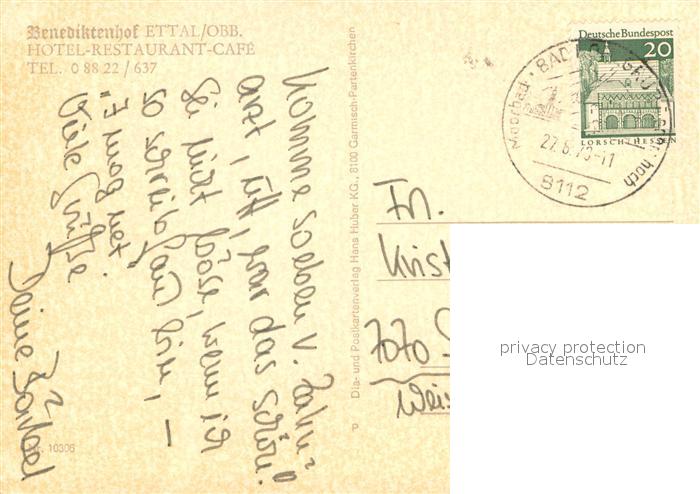 Benediktenhof ETTAL/OBB.
HOTEL-RESTAURANT-CAFÉ
TEL. 0 88 22 / 637
Komme soeben v. Zahn-
arzt, uff, war das schön!
Sei nicht böse, wenn ich
so schreibfaul bin, –
"I mog net".
Viele Grüße
Deine
Nr. 10306
Dia- und Postkartenverlag Hans Huber KG., 8100 Garmisch-Partenkirchen
P
Deutsche Bundespost
20
LORSCH/HESSEN
Moorbad · BAD
27.8.70-11
8112
Frl.
Krist
FOTO
Weil
privacy protection
Datenschutz